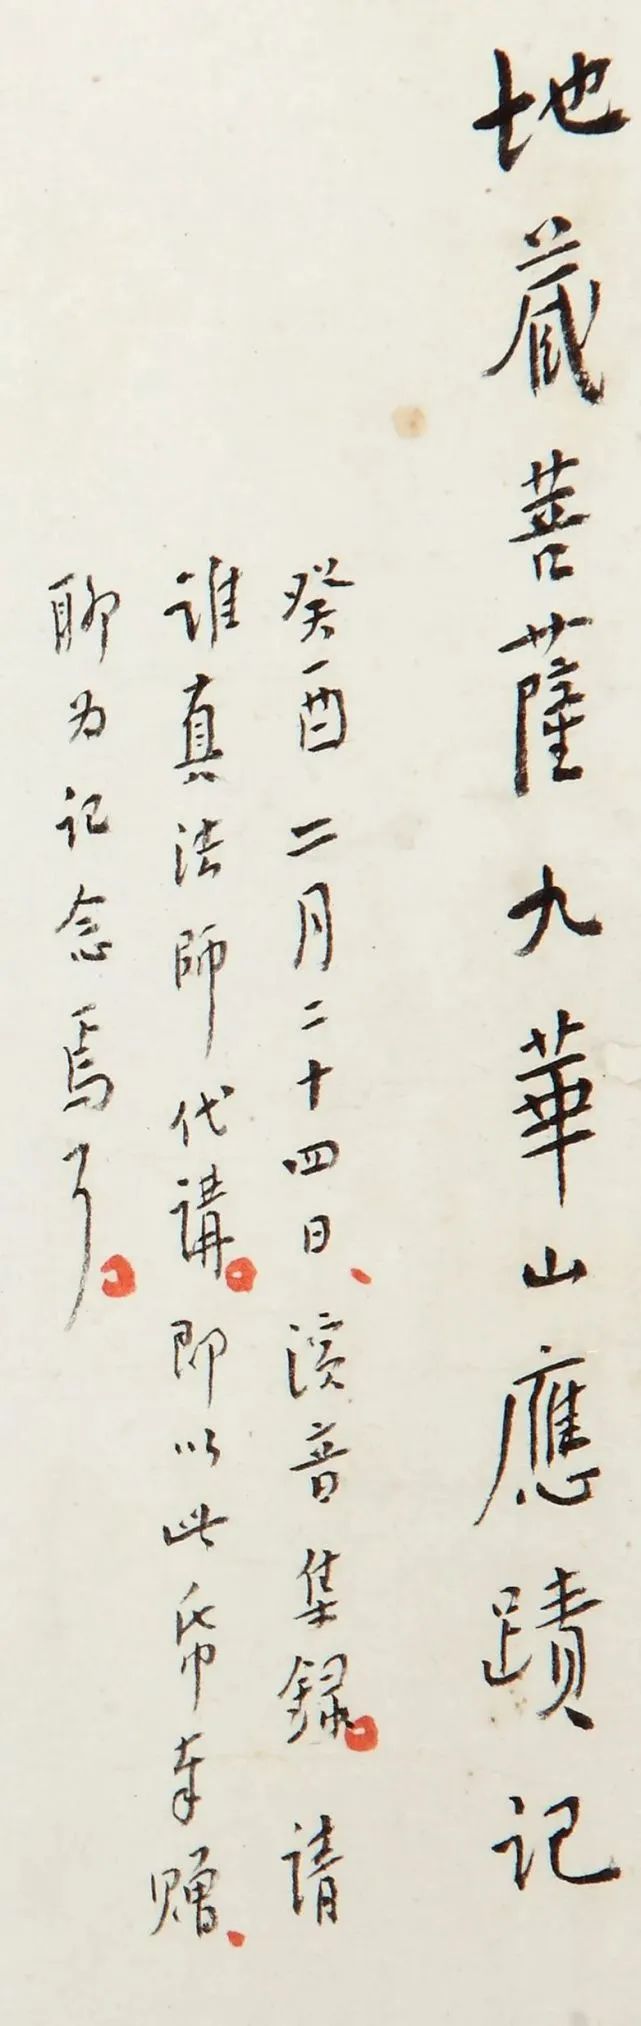 地藏菩薩九華山應蹟記
癸酉二月二十四日演音集録請
誰真法師代講即以此帋奉贈
聊为記念焉尔